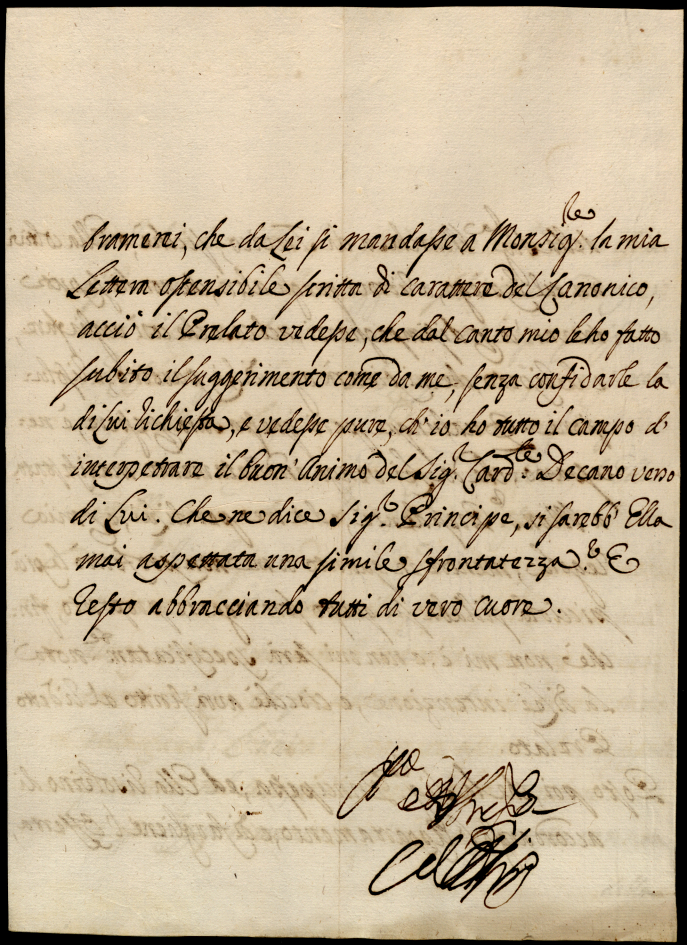 bramerei, che da Lei si mandasse a Monsig.re la mia
Lettera ostensibile scritta di carattere del Canonico,
acciò il Prelato vedesse, che dal canto mio le ho fatto
subito il suggerimento come da me, senza confidarle la
di Lui richiesta, e vedesse pure, ch'io ho tutto il campo d'
interpetrare il buon'animo del Sig.r Card.le Decano verso
di Lui. Che ne dice Sig.r Principe, si sarebb'Ella
mai aspettata una simile sfrontatezza? E
resto abbracciando tutti di vero cuore.